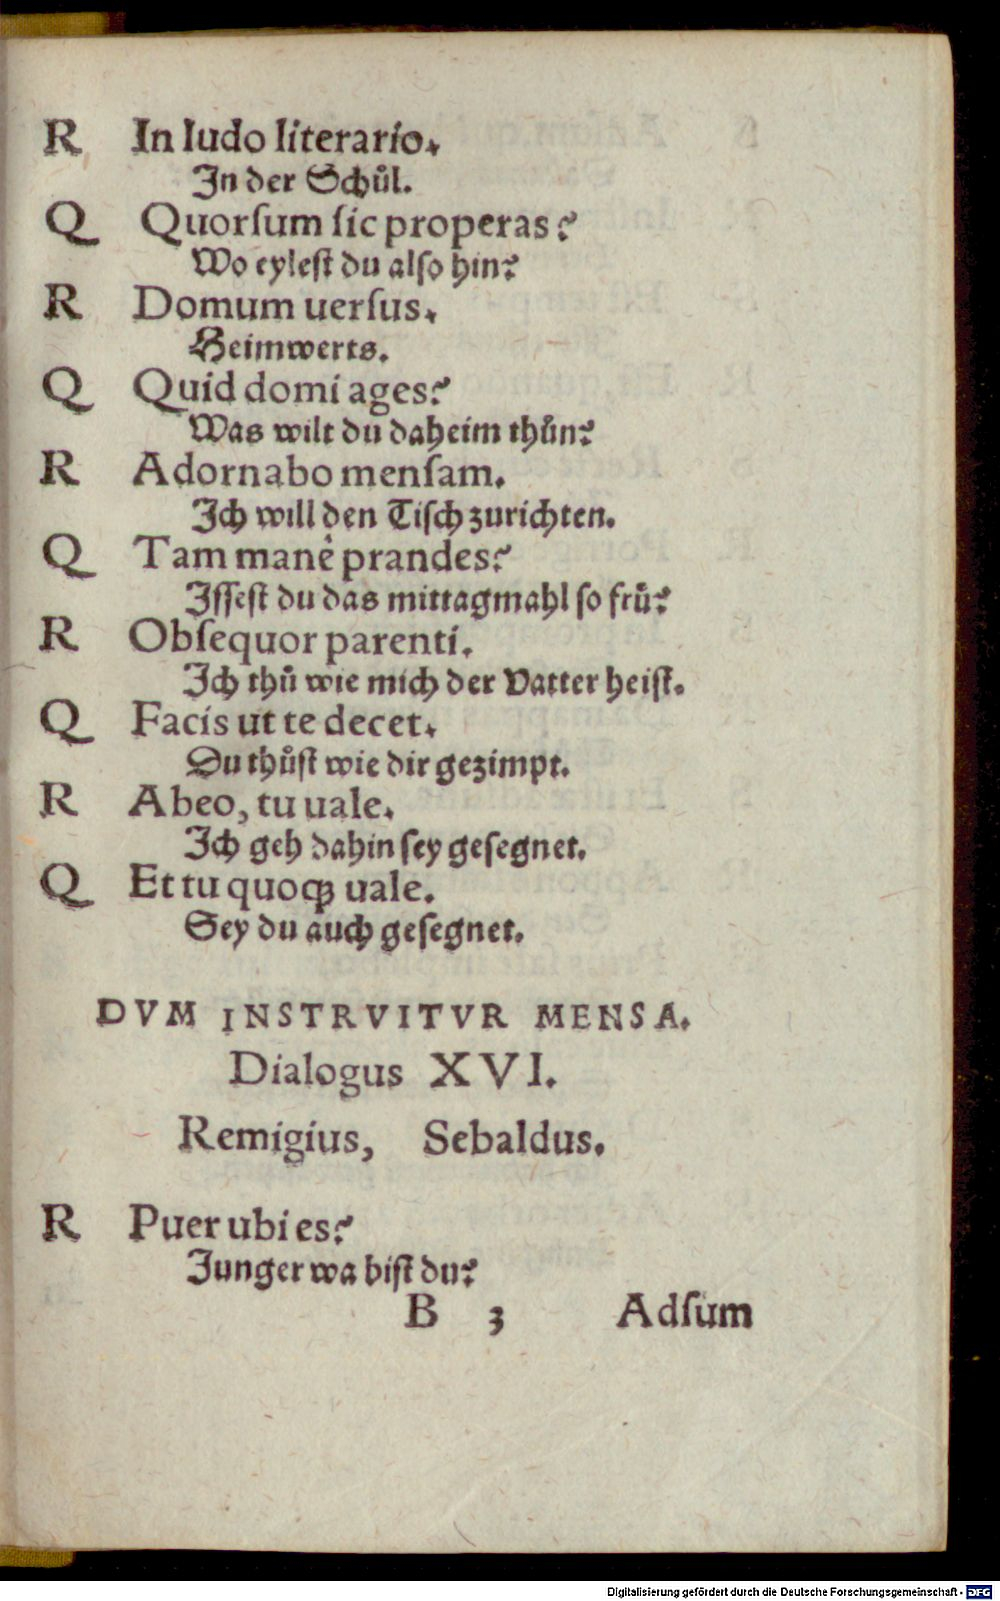 R In ludo literario.
In der Schůl.
Q Quorſum ſic properas?
Wo eyleſt du alſo hin?
R Domum uerſus.
Heimwerts.
Q Quid domi ages?
Was wilt du daheim thůn?
R Adornabo menſam.
Ich will den Tiſch zurichten.
Q Tam manè prandes?
Iſſeſt du das mittagmahl ſo frů?
R Obſequor parenti.
Ich thů wie mich der Vatter heiſt.
Q Facis ut te decet.
Du thůſt wie dir gezimpt.
R Abeo, tu uale.
Ich geh dahin ſey geſegnet.
Q Et tu quoqꝫ uale.
Sey du auch geſegnet.
DVM INSTRVITVR MENSA.
Dialogus XVI.
Remigius, Sebaldus.
R Puer ubi es?
Junger wa biſt du?
B 3 Adſum
Digitalisierung gefördert durch die Deutsche Forschungsgemeinschaft - DFG